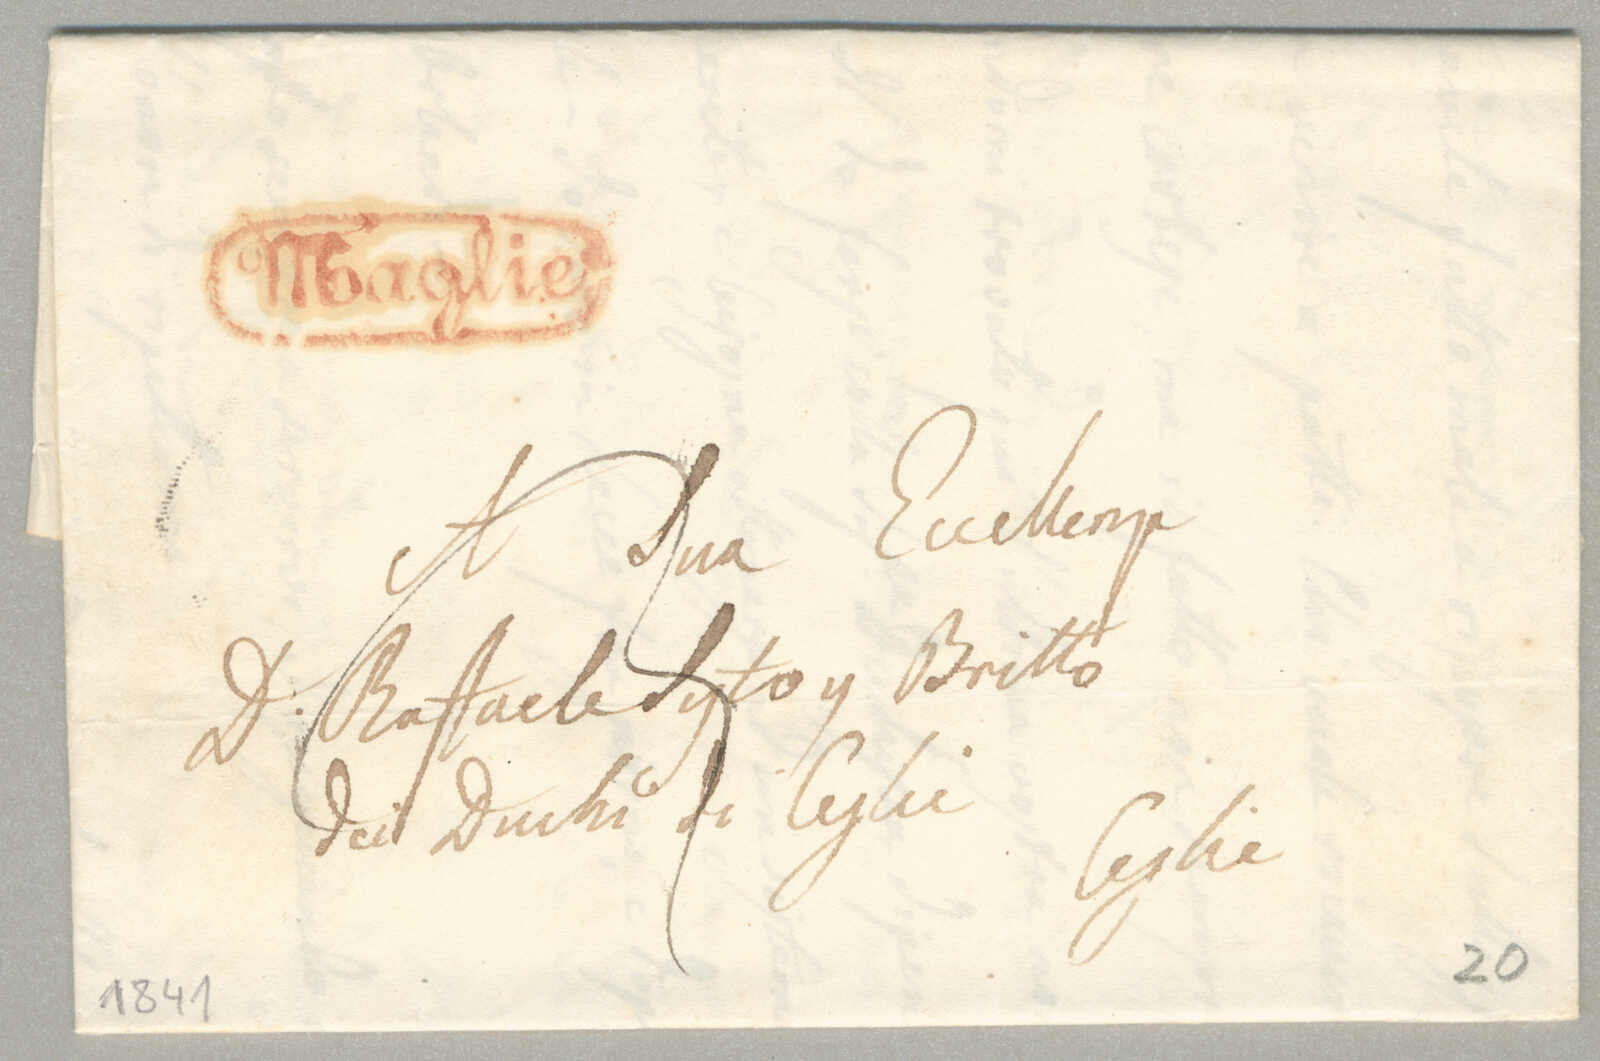 Maglie
A Sua Eccellenza
D. Raffaele Sisto y Britto
dei Duchi di Ceglie
Ceglie
1841
20